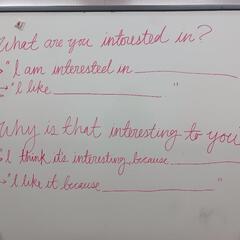 What are you interested in?
→"I am interested in ________
→"I like ________"
Why is that interesting to you
"I think it's interesting because ________
→"I like it because ________"